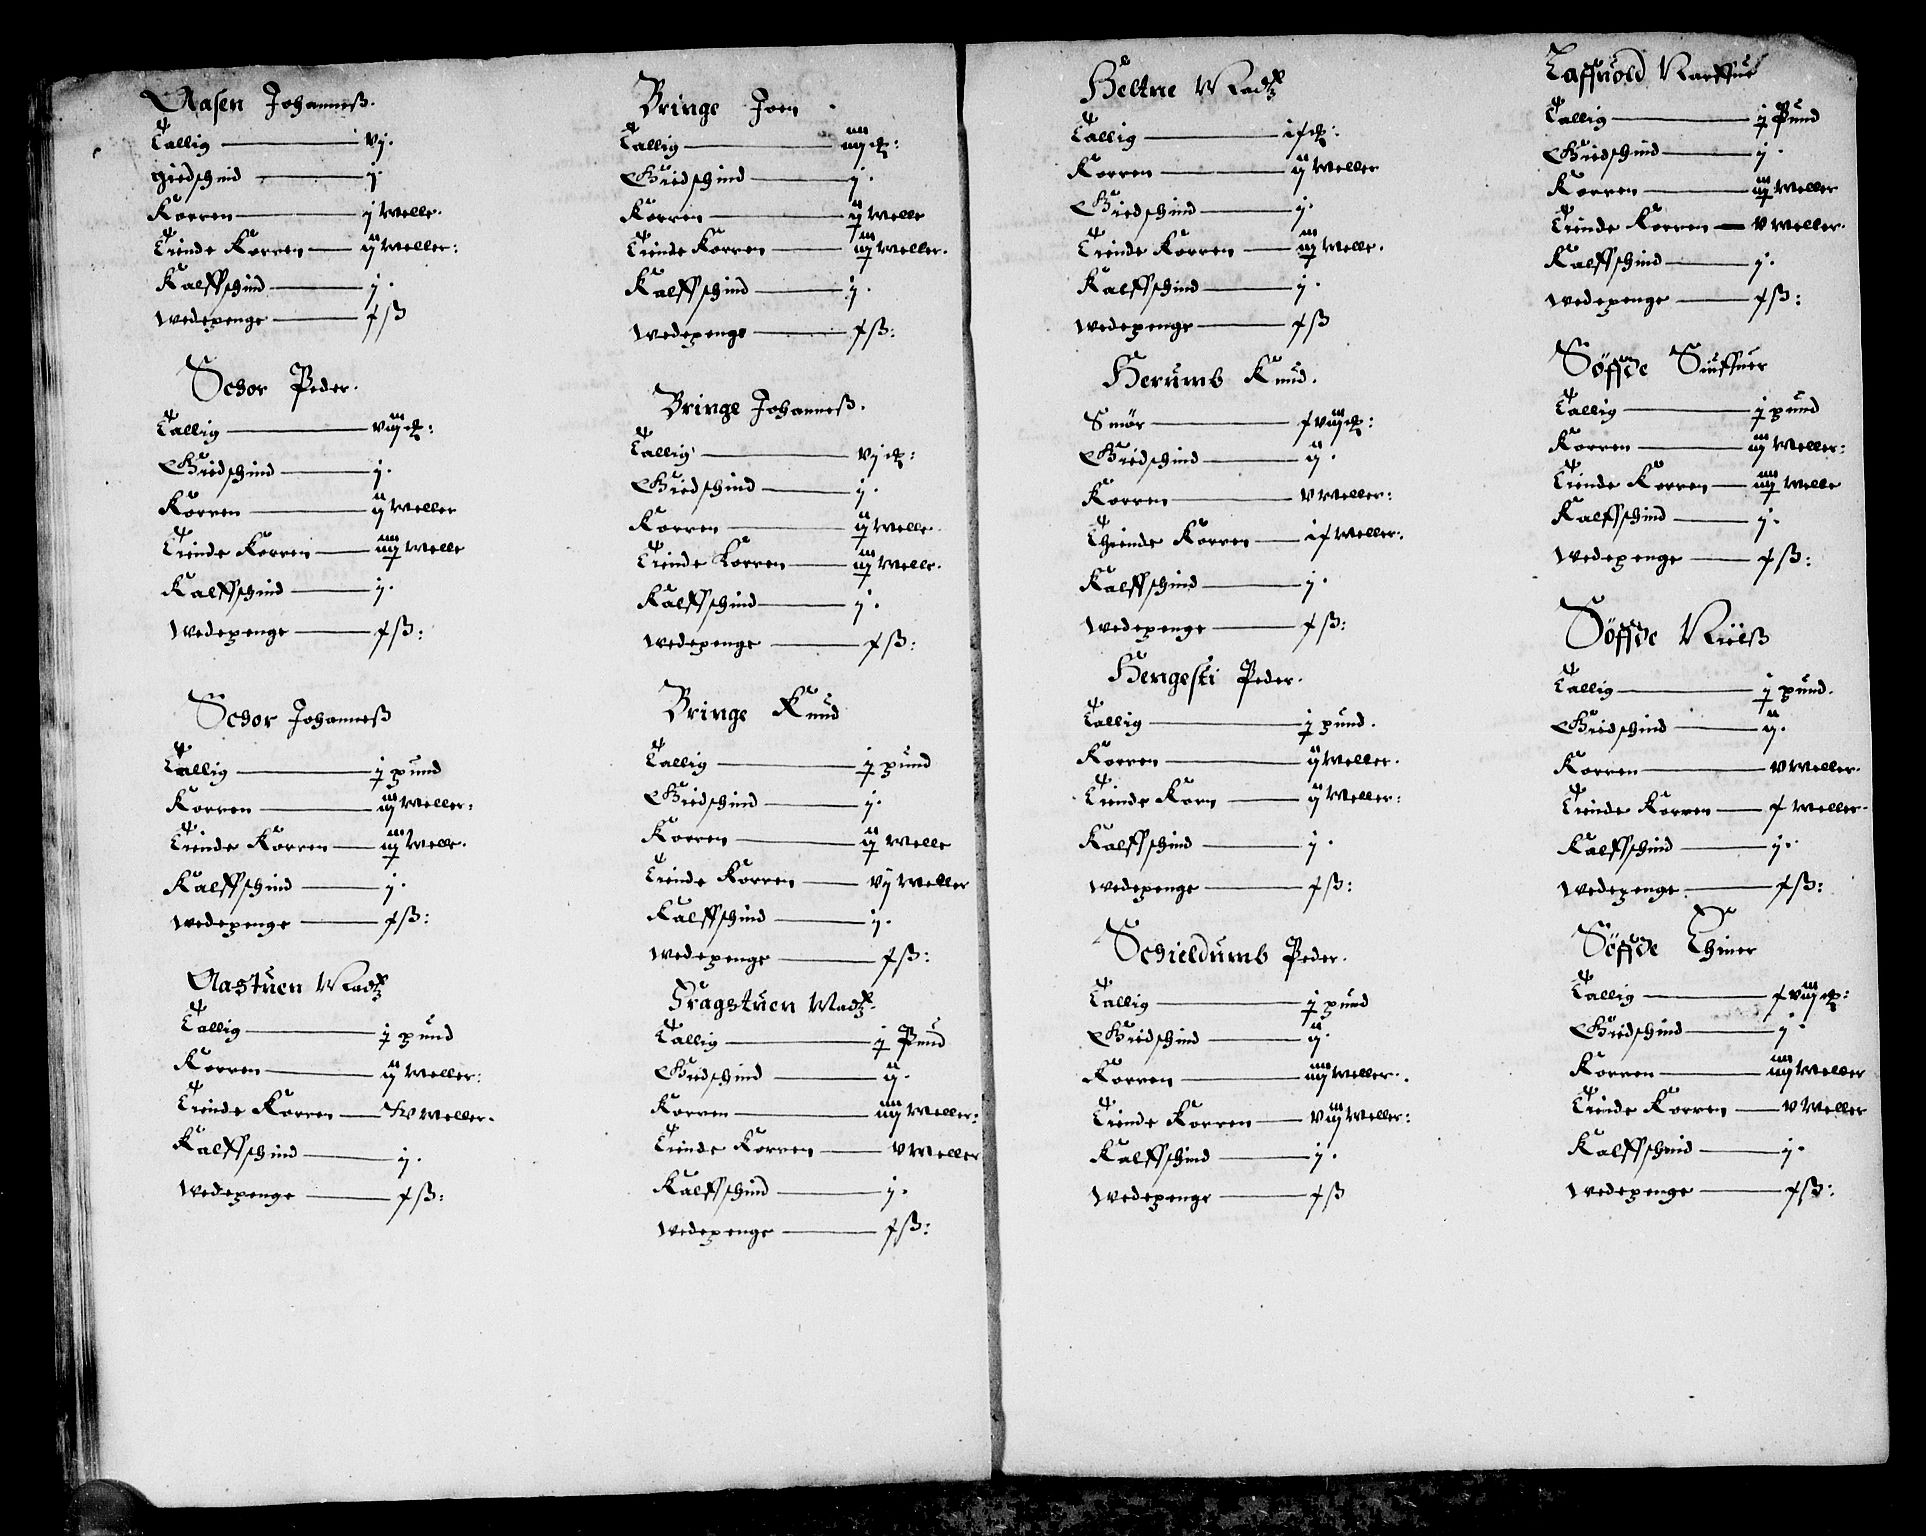 Aasen Johanneß.
Tallig — vj.
giedschind — j.
Korren — j Welle.
Tiende Korren — ij Weller:
Kalffschind — j.
Wedepenge — 1 ß
Schor Peder.
Tallig — viij
Giedschind — j.
Korren — ij Weller
Tiende Korren — iiij Welle
Kalffschind — j.
Wedepenge — 1 ß:
Schor Johanneß
Tallig — j pund
Korren — iij Weller:
Tiende Korren — iiij Welle.
Kalffschind — j.
Wedepenge — 1 ß:
Aastuen Madtz
Tallig — j pund
Korren — ij Weller:
Tiende Korren — Weller.
Kalffschind — j.
Wedepenge — 1 ß:
Bringe Joen
Tallig — iiij
Giedschind — j.
Korren — ij Welle
Tiende Korren — iij Weller.
Kalffschind — j.
Wedepenge — 1 ß:
Bringe Johanneß.
Tallig — vj
Giedschind — j.
Korren — ij Welle.
Tiende Korren — iij Welle.
Kalffschind — j.
Wedepenge — 1 ß:
Bringe Knud
Tallig — j pund
Giedschind — j.
Korren — ij Welle
Tiende Korren — vj Weller
Kalffschind — j.
Wedepenge — 1 ß:
Fragstuen Madtz.
Tallig — j Pund
Giedschind — ij.
Korren — iiij Weller:
Tiende Korren — v Weller
Kalffschind — j.
Wedepenge — 1 ß:
Heltne Madtz
Tallig
Korren — ij Weller
Giedschind — j.
Tiende Korren — iij Welle.
Kalffschind — j.
Wedepenge — 1 ß
Herumb Knud.
Smør
Giedschind — ij.
Korren — v Weller:
Thiende Korren — Weller.
Kalffschind — j.
Wedepenge — 1 ß:
Hengesti Peder.
Tallig — j pund.
Korren — ij Weller.
Tiende Korn — ij Weller:
Kalffschind — j.
Wedepenge — 1 ß:
Schieldumb Peder.
Tallig — j pund
Giedschind — ij.
Korren — iiij Weller.
Tiende Korren — viij Weller:
Kalffschind — j.
Wedepenge — 1 ß
Laffuold Narffue
Tallig — j Pund
Giedschind — j.
Korren — iij Weller
Tiende Korren — v Weller.
Kalffschind — j.
Wedepenge — 1 ß:
Søffde Siuffuer
Tallig — j pund
Korren — iij Weller:
Tiende Korren — iiij Welle
Kalffschind — j.
Wedepenge — 1 ß:
Søffde Nielß
Tallig — j pund.
Giedschind — ij.
Korren — v Weller.
Tiende Korren — Weller.
Kalffschind — j.
Wedepenge — 1 ß:
Søffde Einer
Tallig
Giedschind — j.
Korren — iiij Weller
Tiende Korren — v Weller
Kalffschind — j.
Wedepenge — 1 ß: